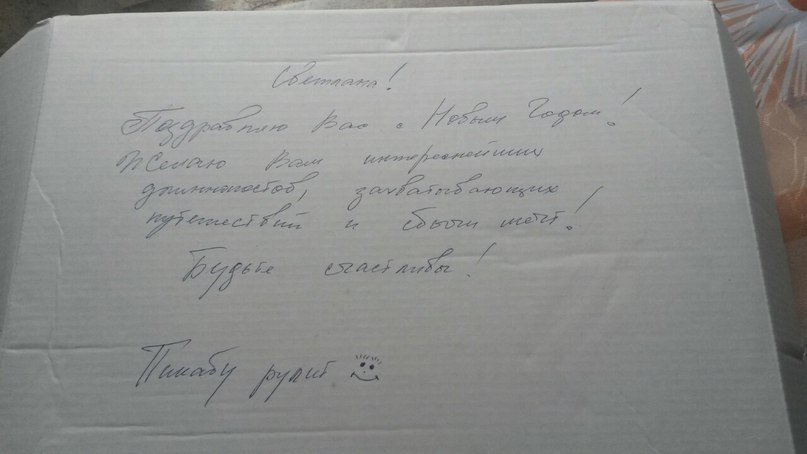 Светлана!
Поздравляю Вас с Новым Годом!
Желаю Вам интереснейших
длиннопостов, захватывающих
путешествий и сбычи мечт!
Будьте счастливы!
Пикабу рулит